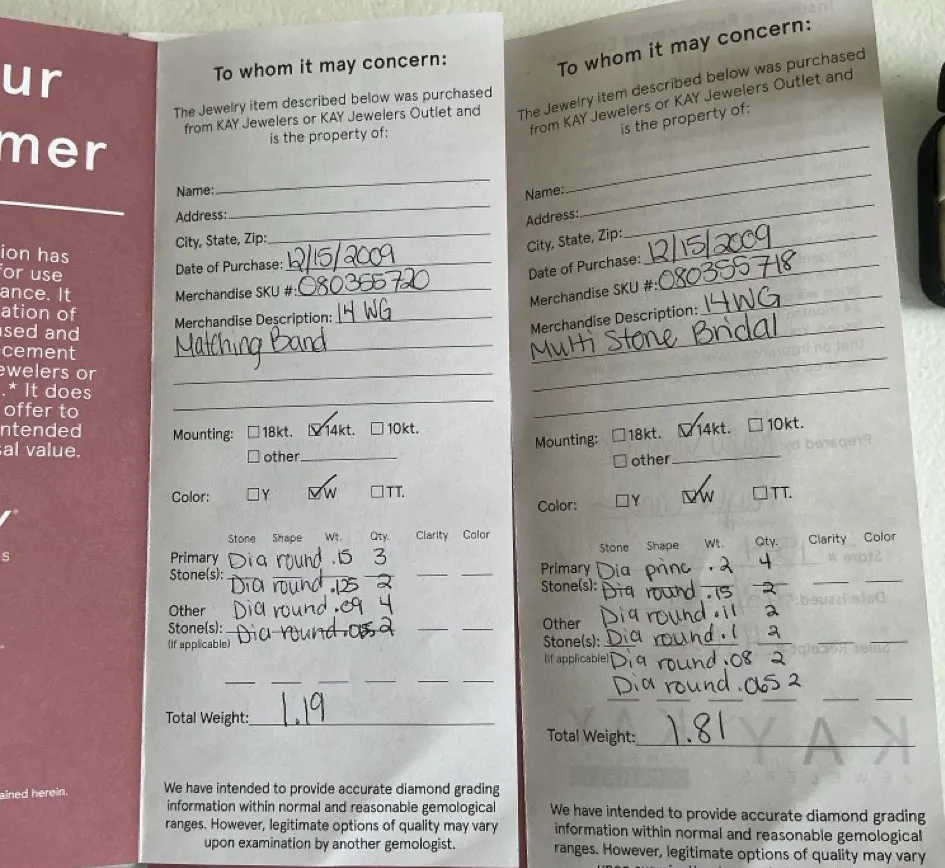 ur
mer
ion has
for use
ance. It
ation of
ased and
cement
ewelers or
.* It does
offer to
ntended
sal value.
s
ained herein.
To whom it may concern:
The Jewelry item described below was purchased
from KAY Jewelers or KAY Jewelers Outlet and
is the property of:
Name:
Address:
City, State, Zip:
Date of Purchase: 12/15/2009
Merchandise SKU #: 080355720
Merchandise Description: 14 WG
Matching Band
Mounting: 18kt. 14kt. 10kt.
other
Color: Y W TT.
Stone Shape Wt. Qty. Clarity Color
Primary Dia round .15 3
Stone(s): Dia round .125 2
Other Dia round .09 4
Stone(s): Dia round .065 2
(If applicable)
Total Weight: 1.19
We have intended to provide accurate diamond grading
information within normal and reasonable gemological
ranges. However, legitimate options of quality may vary
upon examination by another gemologist.
To whom it may concern:
The Jewelry item described below was purchased
from KAY Jewelers or KAY Jewelers Outlet and
is the property of:
Name:
Address:
City, State, Zip:
Date of Purchase: 12/15/2009
Merchandise SKU #: 080355718
Merchandise Description: 14 WG
Multi Stone Bridal
Mounting: 18kt. 14kt. 10kt.
other
Color: Y W TT.
Stone Shape Wt. Qty. Clarity Color
Primary Dia princ .2 4
Stone(s): Dia round .15 2
Other Dia round .11 2
Stone(s): Dia round .1 2
(If applicable) Dia round .08 2
Dia round .065 2
Total Weight: 1.81
We have intended to provide accurate diamond grading
information within normal and reasonable gemological
ranges. However, legitimate options of quality may vary